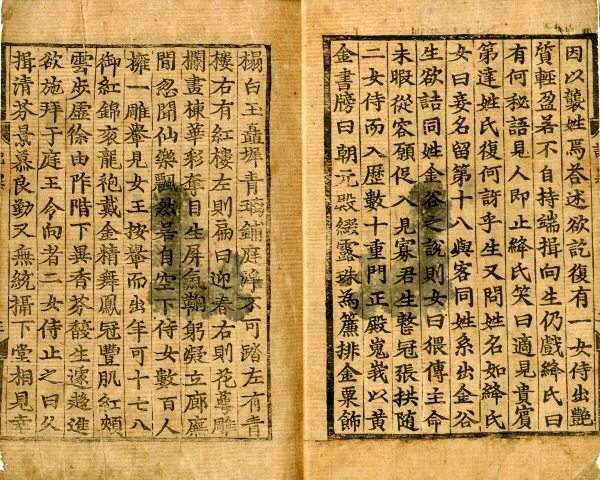 因以襲姓焉荅述欲訖復有一女侍出艶
質輕盈若不自持端揖向生仍戲絳氏曰
有何秘語見人即止絳氏笑曰適見貴賓
第達姓氏復何訝乎生又問姓名如絳氏
女曰妾名留第十八與客同姓系出金谷
生欲詰同姓金谷之說則女曰猥傳主命
未暇從容願促入見寡君生整冠張拱随
二女侍而入歷數十重門正殿嵬峩以黃
金書牓曰朝元殿綴露珠爲簾排金粟飾
榻白玉壘墀青璃鋪庭淨不可踏左有青
樓右有紅樓左則扁曰迎春右則花萼雕
欄畫棟華彩奪目生屏氣鞠躬凝立廊廡
間忽聞仙樂飄然若自空下侍女數百人
擁一雕轝見女王按轝而出年可十七八
御紅錦袞龍袍戴金精舞鳳冠豐肌紅頰
雲步虛徐由阼階下異香芬馥生遽趨進
欲施拜于庭王令向者二女侍止之曰久
揖清芬景慕良勤又無統攝下堂相見幸